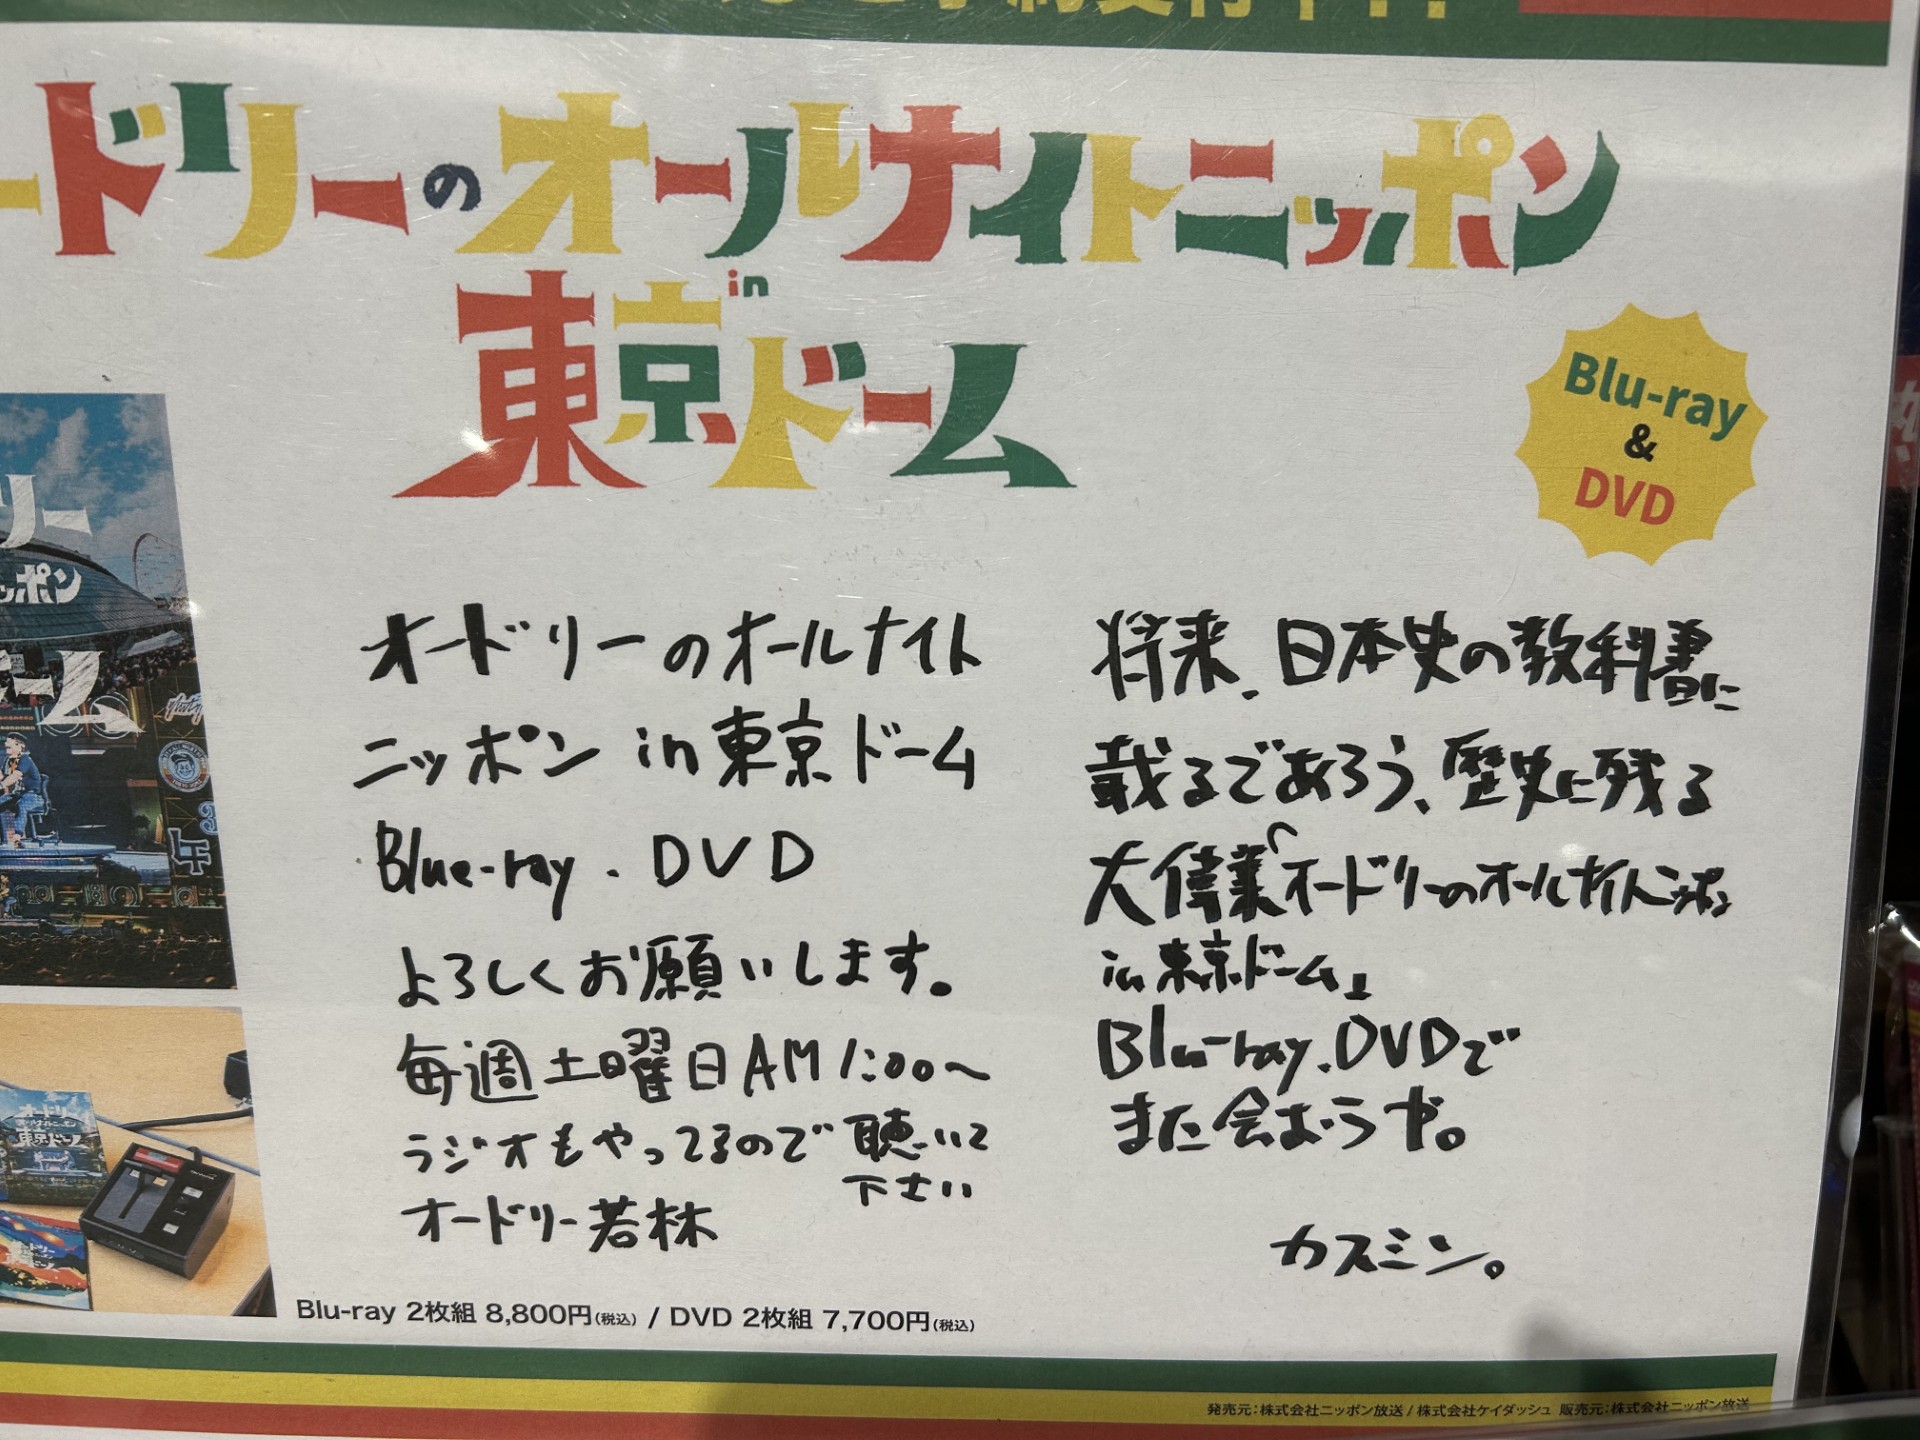 ードリーのオールナイトニッポン
in
東京ドーム
Blu-ray
&
DVD
オードリーのオールナイト
ニッポン in 東京ドーム
Blue-ray . DVD
よろしくお願いします。
毎週土曜日AM1:00〜
ラジオもやってるので聴いて
下さい
オードリー若林
将来、日本史の教科書に
載るであろう、歴史に残る
大偉業「オードリーのオールナイトニッポン
in 東京ドーム」
Blu-ray.DVDで
また会おうぜ。
カスミン。
Blu-ray 2枚組 8,800円(税込) / DVD 2枚組 7,700円(税込)
発売元：株式会社ニッポン放送 / 株式会社ケイダッシュ 販売元：株式会社ニッポン放送